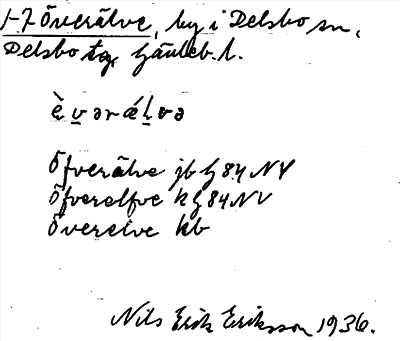 1-7 Överälve, by i Delsbo sn,
Delsbo tg, Gävleb. l.
è v ə r ǽ l v ə
Öfverälve jb G84 NV
Öfverelfve k G84 NV
Överelve kb
Nils Erik Eriksson 1936.